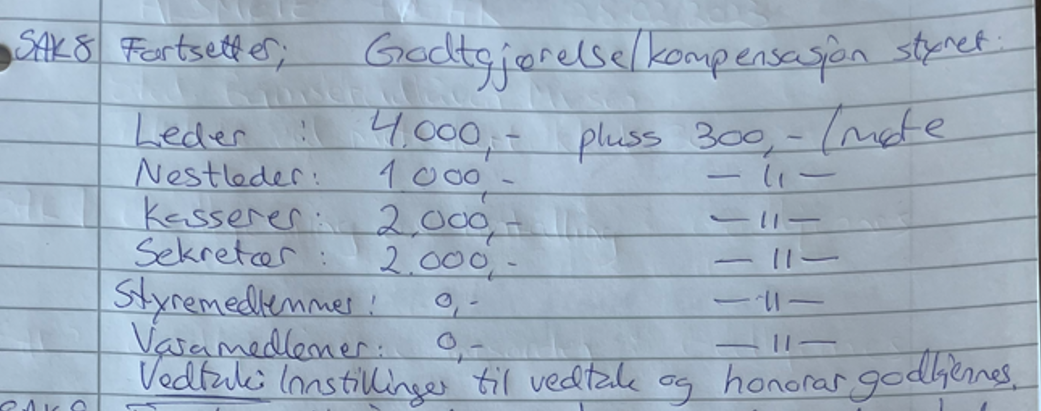 SAK 8 Fortsetter; Godtgjørelse/kompensasjon styret:
Leder : 4.000,- pluss 300,- /møte
Nestleder: 1 000,- — 11 —
Kasserer: 2.000,- — 11 —
Sekretær : 2.000,- — 11 —
Styremedlemmer: 0,- — 11 —
Varamedlemer: 0,- — 11 —
Vedtak: Innstillinger til vedtak og honorar godkjennes.